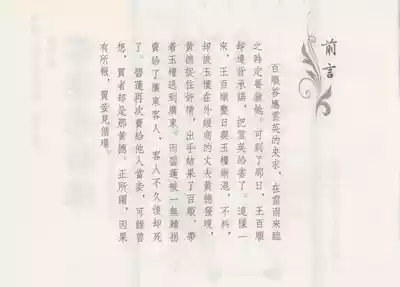 前言
百順答應雲英的央求，在雷雨來臨
之時定要救她。可到了那日，王百順
却違背承諾，把雲英給害了。這樣一
來，王百順整日與玉樓廝混，不料，
却被玉樓在外經商的丈夫黃德發現，
黃德捉姦好情，出手結果了百順，帶
着玉樓逃到廣東。而碧蓮被一無賴拐
賣給了廣東客人，客人不久後却死
了。碧蓮再次賣給他人當妾，可誰曾
想，買者却是那黃德。正所謂，因果
有所報，買妾見循環。